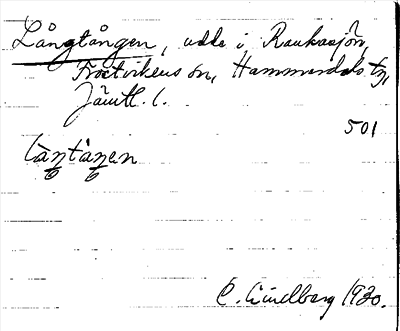 Långtången, udde i Raukasjön,
Frostvikens sn, Hammerdals tg,
Jämtl. l.
501
làŋtàŋen
C. Lindberg 1930.